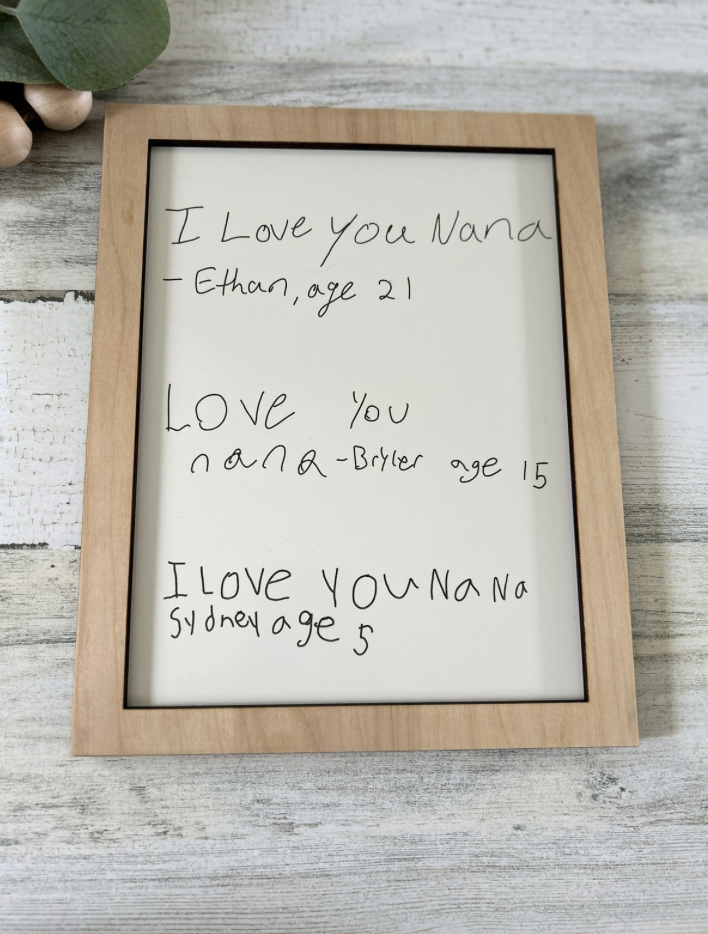 I Love you Nana
- Ethan, age 21
Love You
nana - Bryler age 15
I LOVE YOU NaNa
Sydney age 5